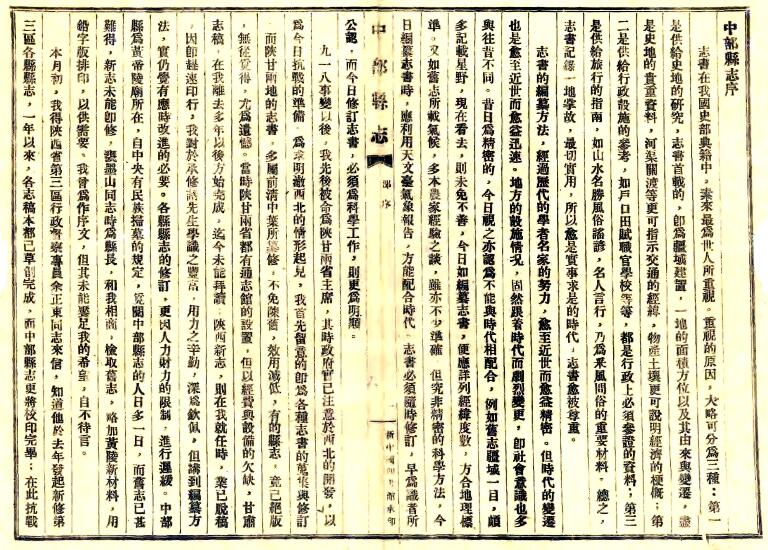 中部縣志序
志書在我國史部典籍中，素來最爲世人所重視。重視的原因，大略可分爲三種：第一
是供給史地的研究，志書首載的，卽爲疆域建置，一地的面積方位以及其由來與變遷，盡
是史地的貴重資料，河渠關渡等更可指示交通的經緯，物產土壤更可說明經濟的梗慨；第
二是供給行政設施的參考，如戶口田賦職官學校等等，都是行政上必須參證的資料；第三
是供給旅行的指南，如山水名勝風俗謠諺，名人言行，乃爲釆風問俗的重要材料。總之，
志書記錄一地掌故，最切實用，所以愈是實事求是的時代，志書愈被尊重。
志書的編纂方法，經過歷代的學者名家的努力，愈至近世而愈益精密。但時代的變遷
也是愈至近世而愈益迅速。地方的設施情况，固然跟着時代而劇烈變更，卽社會意識也多
與往昔不同。昔日爲精密的，今日視之亦認爲不能與時代相配合，例如舊志疆域一目，頗
多記載星野，現在看去，則未免不善，今日如編纂志書，便應詳列經緯度數，方合地理標
準。又如舊志所載氣候，多本農家經驗之談，雖亦不少準確，但究非精密的科學方法，今
日編纂志書時，應利用天文臺氣象報告，方能配合時代。志書必須隨時修訂，早爲識者所
中部縣志
部序
公認，而今日修訂志書，必須爲科學工作，則更爲明顯。
九一八事變以後，我先後被命爲陝甘兩省主席，其時政府曾已注意於西北的開發，以
爲今日抗戰的準備。爲求明澈西北的情形起見，我首先留意的卽爲各種志書的蒐集與修訂
。而陝甘兩地的志書，多屬前清中葉所纂修，不免陳舊，效用減低，有的縣志，竟已絕版
，無從覓得，尤爲遺憾。當時陝甘兩省都有通志館的設置，但以經費與設備的欠缺，甘肅
志稿，在我離去多年以後方始完成，迄今未能拜讀。陝西新志，則在我就任時，業已脫稿
，因卽趕速印行，我對於承修諸先生學識之豐富，用力之辛勤，深爲欽佩，但講到編纂方
法，實仍覺有應時改進的必要。各縣縣志的修訂，更因人力財力的限制，進行遲緩。中部
縣爲黃帝陵廟所在，自中央有民族掃墓的規定，覓閱中部縣志的人日多一日，而舊志已甚
難得，新志未能卽修，龑墨山同志時爲縣長，和我相商，檢取舊志，略加黃陵新材料，用
鉛字版排印，以供需要。我曾爲作序文，但其未能饜足我的希望，自不待言。
本月初，我得陝西省第三區行政督察專員余正東同志來信，知道他於去年發起新修第
三區各縣縣志，一年以來，各志稿本都已草創完成，而中部縣志更將校印完畢；在此抗戰